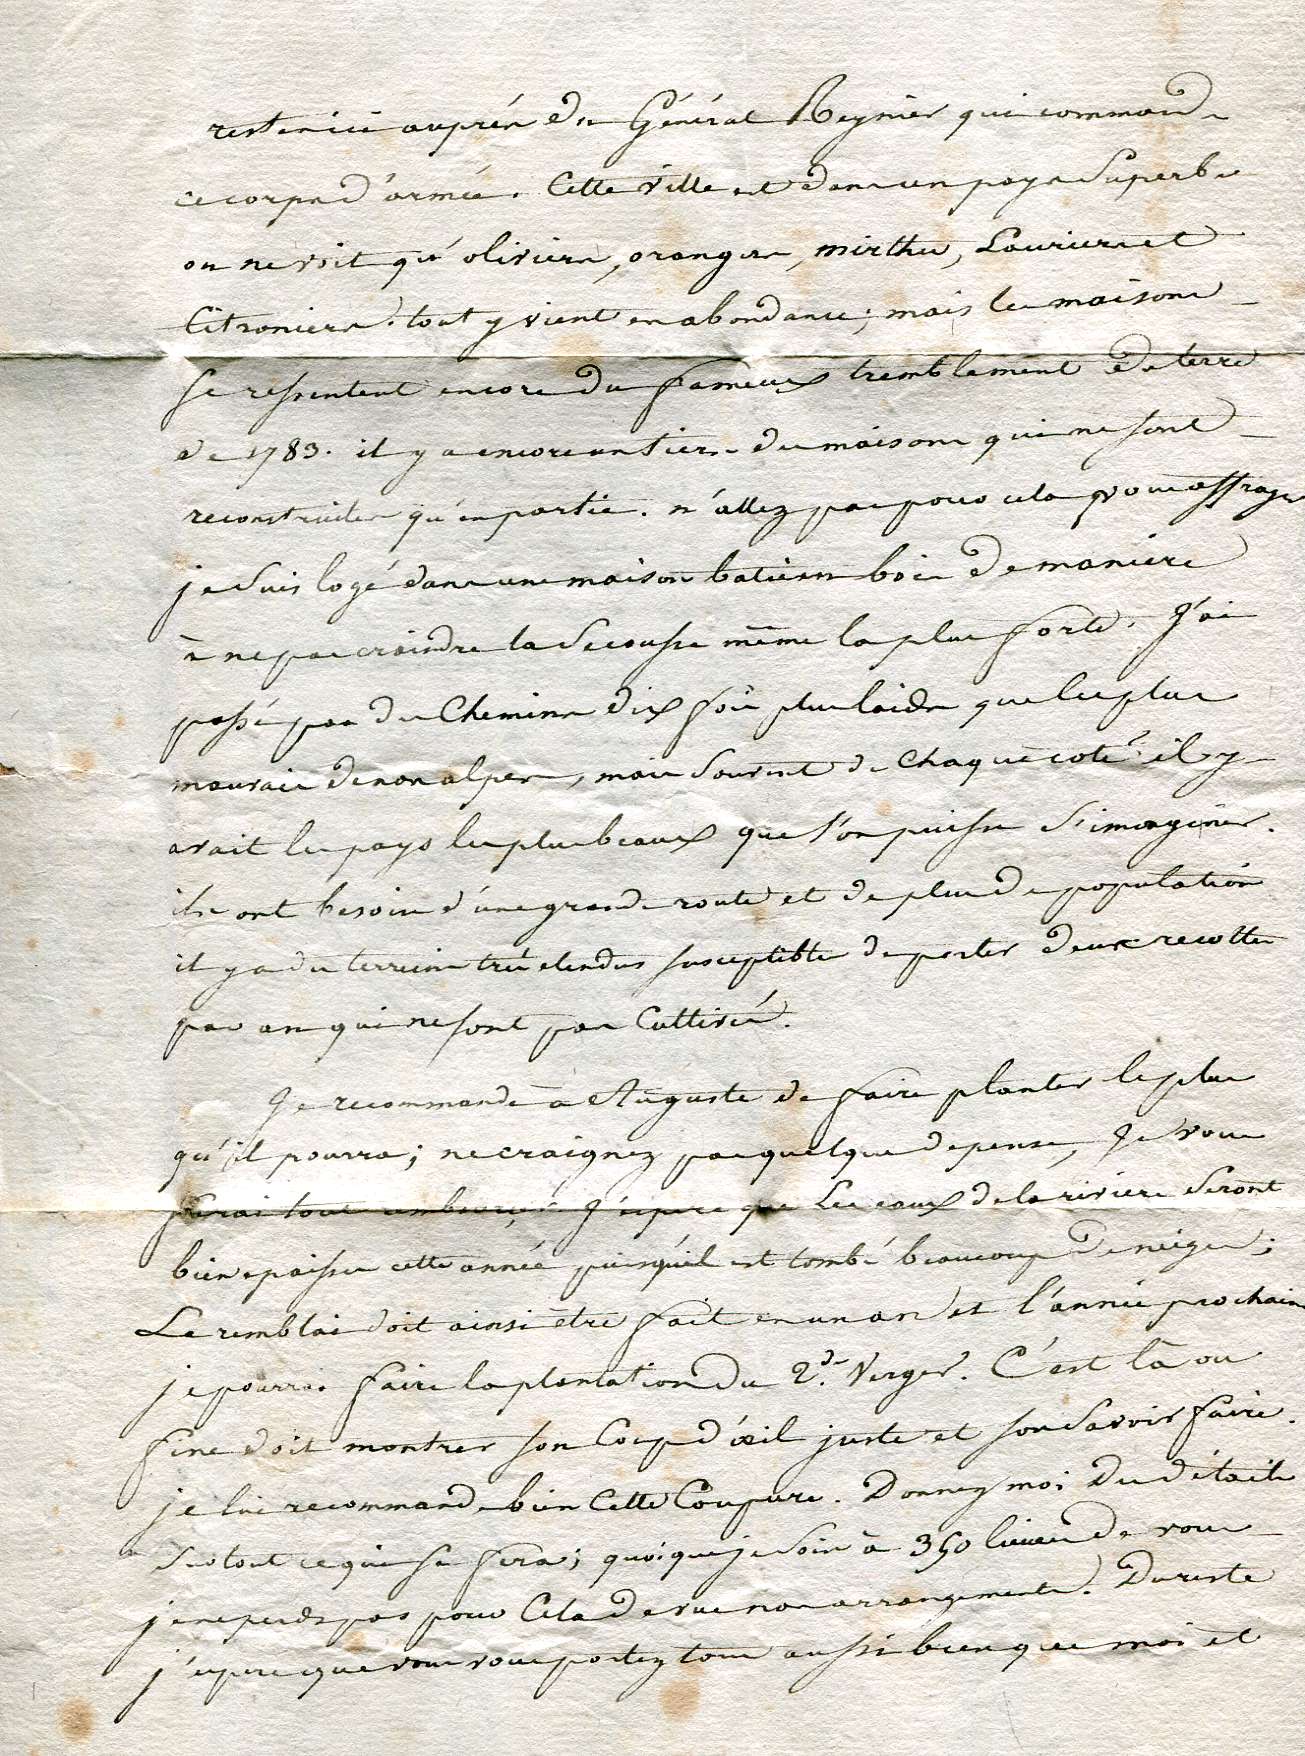 rester ici auprés du Général Reynier qui commande
ce corps d'armée. Cette ville est dans un pays Superbe
on ne voit qu'oliviers, orangers, mirthes, Lauriers et
Citroniers. tout y vient en abondance; mais les maisons
se ressentent encore du fameux tremblement de terre
de 1783. il y a encore un tiers des maisons qui ne sont
reconstruites qu'en partie. n'allez pas pour cela vous effrayer
je suis logé dans une maison batie en bois de maniere
à ne pas craindre la Secousse même la plus forte. J'ai
passé par des Chemins dix fois plus laids que les plus
mauvais de nos alpes, mais Souvent de Chaque coté il y
avait les pays les plus beaux que l'on puisse S'imaginer.
ils ont besoin d'une grande route et de plus de population
il y a des terreins très etendus susceptibles de porter deux recoltes
par an qui ne sont pas Cultivés.
Je recommande à Auguste de faire planter le plus
qu'il pourra; ne craignez pas quelque depense, Je vous
ferai tous rembourser. J'espere que Les eaux de la riviere Seront
bien epaisses cette année puisqu'il est tombé beaucoup de neiges;
Le remblai doit ainsi être fait en un an et l'année prochaine
je pourrai faire la plantation du 2d. Verger. C'est là ou
fine doit montrer son Coup d'œil juste et son Savoir faire.
je lui recommande bien Cette Coupure. Donnez moi des détails
Sur tout ce qui se fera; quoique je Sois à 350 lieues de vous
je ne perds pas pour Cela de vue nos arrangements. Du reste
j'espere que vous vous portez tous aussi bien que moi et